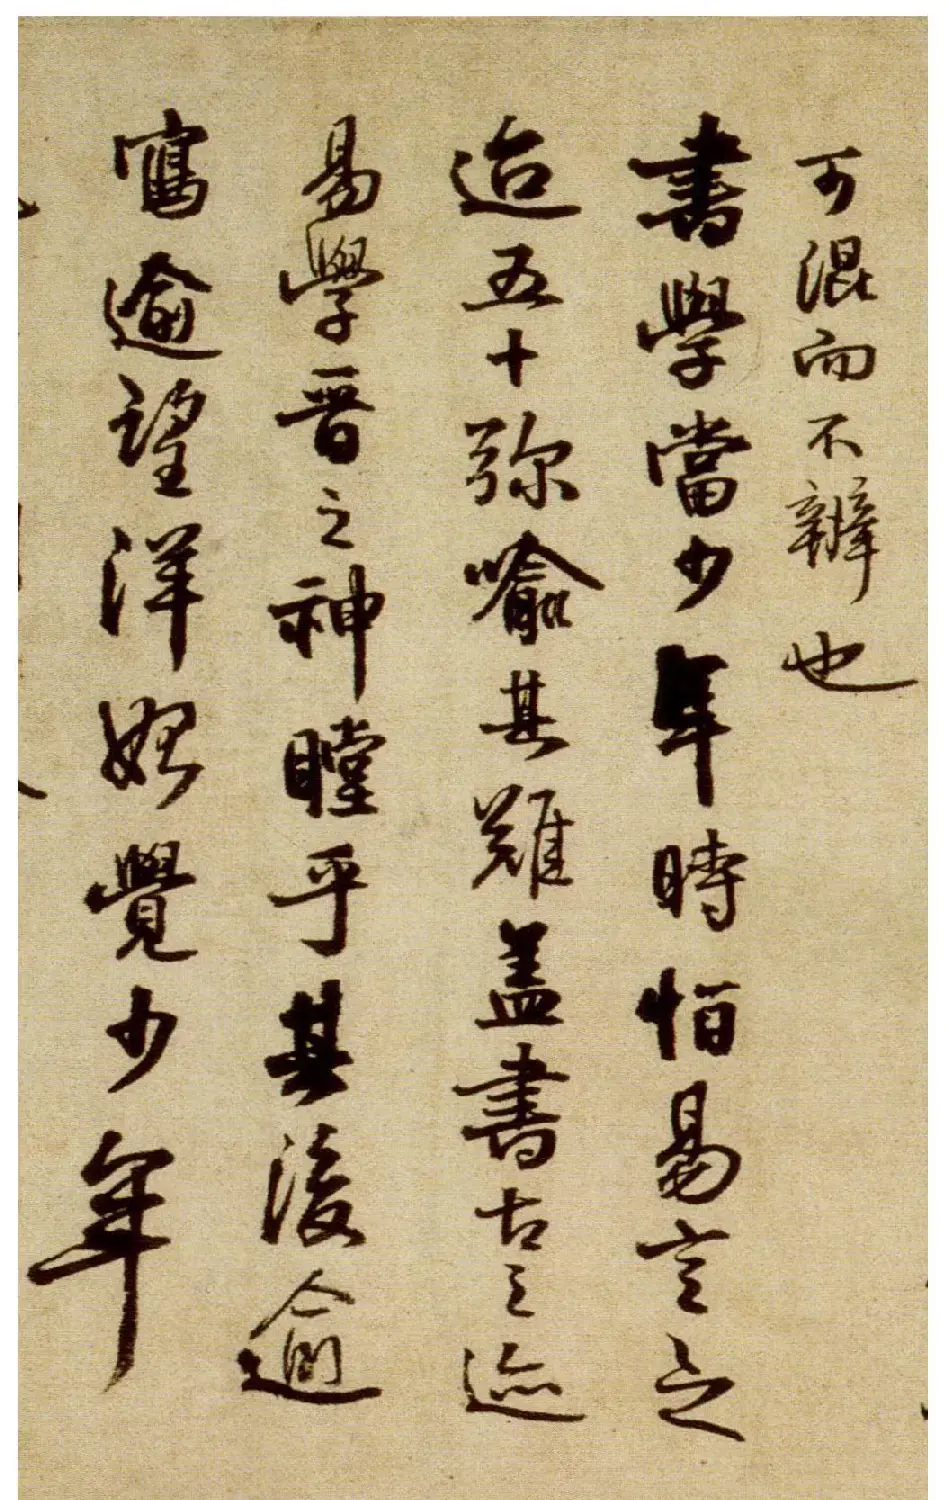 可混而不辨也
書學當少年時恒易言之
迨五十弥喻其難盖書古之迹
易學晋之神瞠乎其後逾
寫逾望洋始覺少年